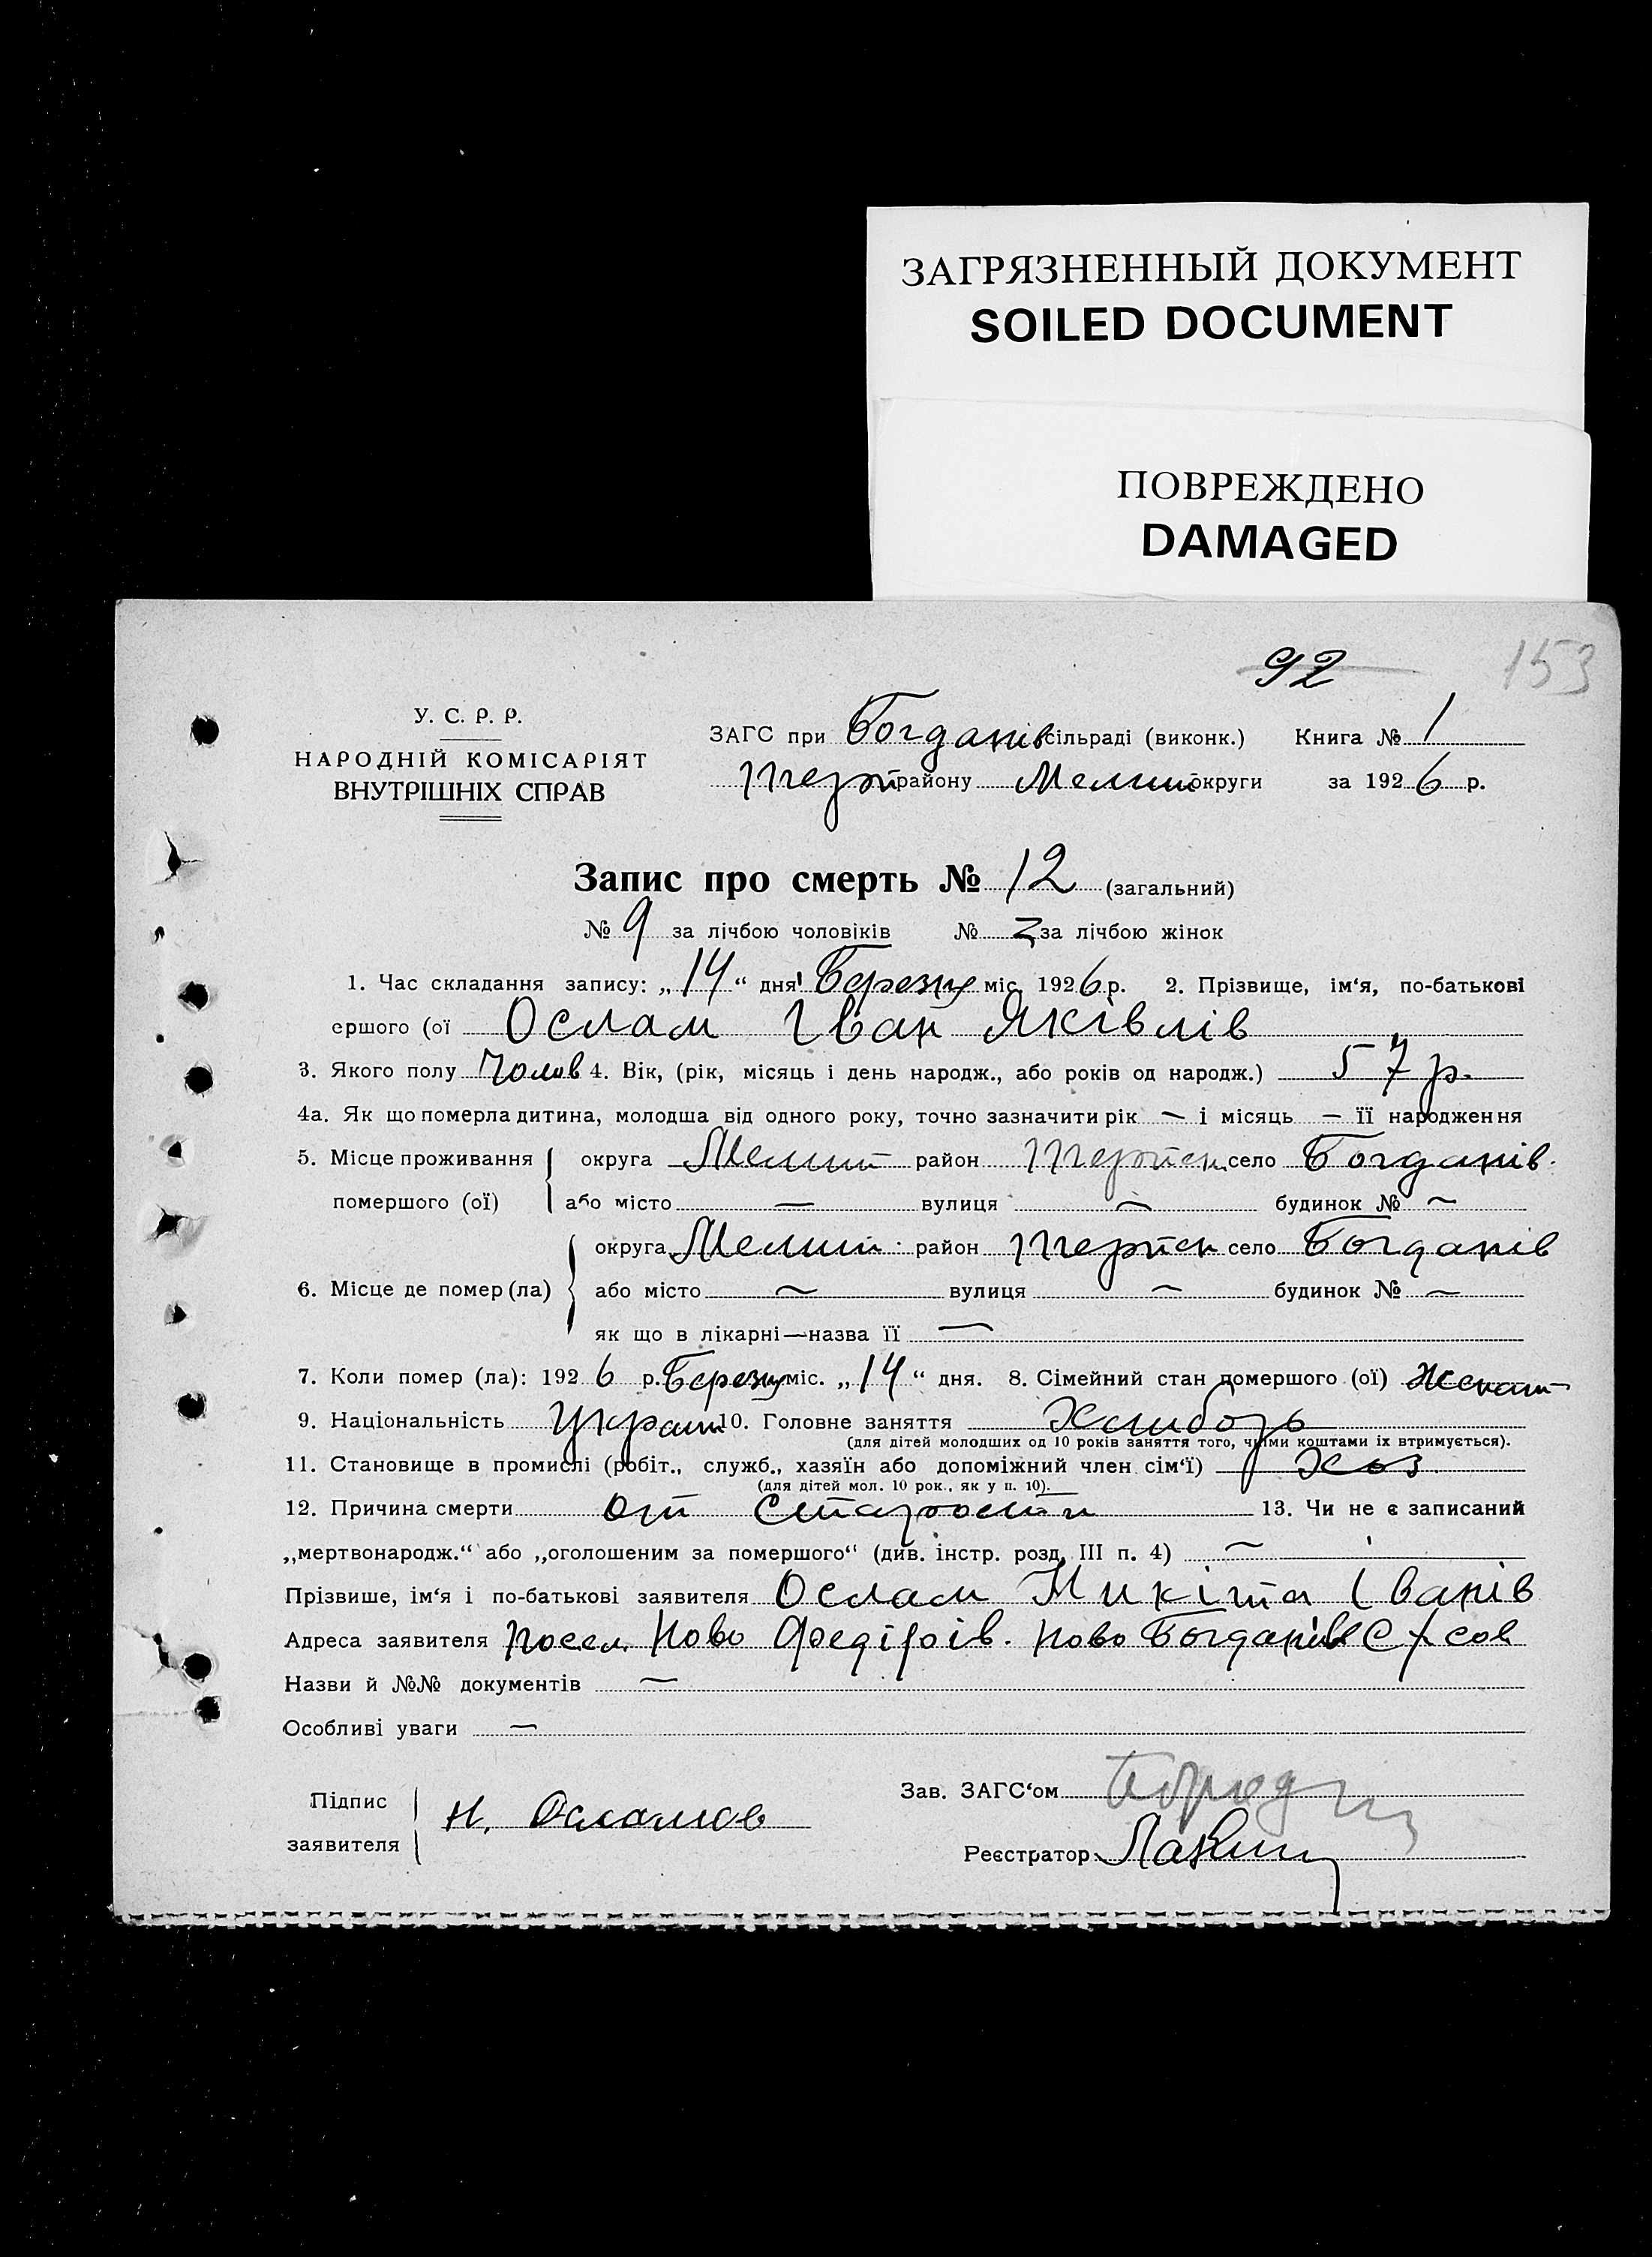 ЗАГРЯЗНЕННЫЙ ДОКУМЕНТ
SOILED DOCUMENT
ПОВРЕЖДЕНО
DAMAGED
92 153
У. С. Р. Р.
НАРОДНІЙ КОМІСАРІЯТ
ВНУТРІШНІХ СПРАВ
ЗАГС при Богданів сільраді (виконк.) Книга № 1
Терп району Мелит округи за 1926 р.
Запис про смерть № 12 (загальний)
№ 9 за лічбою чоловіків № 3 за лічбою жінок
1. Час складання запису: „14“ дня Березня міс. 1926 р. 2. Прізвище, ім‘я, по-батькові
ершого (ої Ослам Іван Яківлів
3. Якого полу Чолов 4. Вік, (рік, місяць і день народж., або років од народж.) 57 р.
4а. Як що померла дитина, молодша від одного року, точно зазначити рік — і місяць — її народження
5. Місце проживання округа Мелит район Терпен село Богданів.
помершого (ої) або місто — вулиця — будинок № —
округа Мелит район Терпен село Богданів
6. Місце де помер (ла) або місто — вулиця — будинок № —
як що в лікарні—назва її —
7. Коли помер (ла): 1926 р. Березня міс. „14“ дня. 8. Сімейний стан помершого (ої) Женат
9. Національність Украин 10. Головне заняття Хлибор
(для дітей молодших од 10 років заняття того, чиїми коштами їх втримується).
11. Становище в промислі (робіт., служб., хазяїн або допоміжний член сім‘ї) Хоз
(для дітей мол. 10 рок., як у п. 10).
12. Причина смерти от старости 13. Чи не є записаний
„мертвонародж.“ або „оголошеним за помершого“ (див. інстр. розд. III п. 4) —
Прізвише, ім‘я і по-батькові заявителя Ослам Микіта Іванів
Адреса заявителя посел. Ново Федірів. Ново Богданів С/сов
Назви й №№ документів —
Особливі уваги —
Підпис
заявителя Н. Осламов
Зав. ЗАГС‘ом
Реєстратор